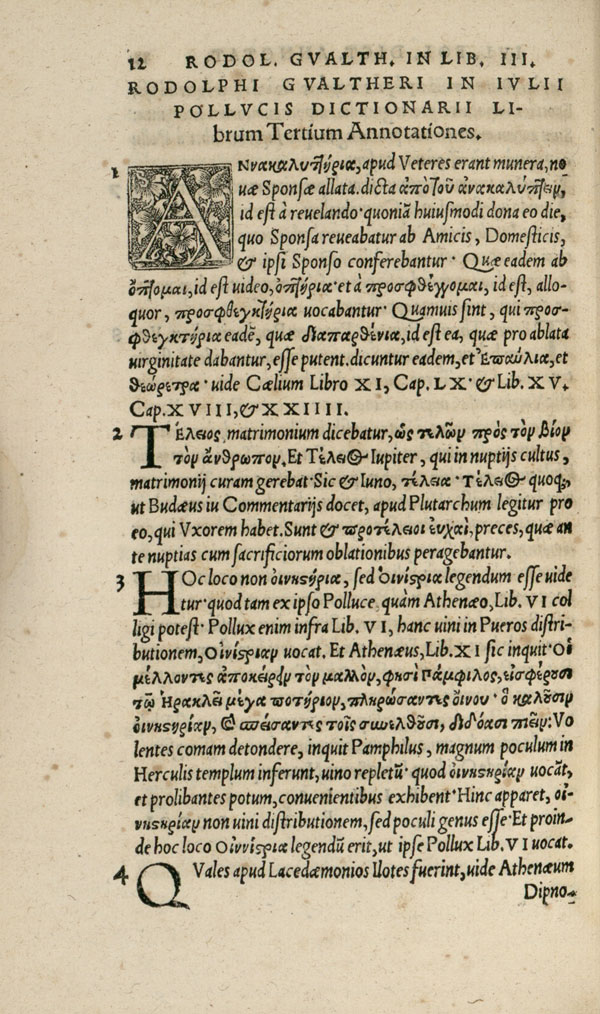 12 RODOL. GVALTH. IN LIB. III.
RODOLPHI GVALTHERI IN IVLII
POLLVCIS DICTIONARII LI-
brum Tertium Annotationes.
1 ANνακαλυπτήρια, apud Veteres erant munera, no
uæ Sponsæ allata. dicta ἀπὸ τοῦ ἀνακαλύπτειν,
id est à revelando· quoniã huiusmodi dona eo die,
quo Sponsa reveabatur ab Amicis, Domesticis,
& ipsi Sponso conferebantur· Quæ eadem ab
ὄπτομαι, id est video, ὀπτήρια· et à προσφθέγγομαι, id est, allo-
quor, προσφθεγκτήρια uocabantur· Quamuis sint, qui προσ-
φθεγκτύρια eadẽ, quæ διαπαρθένια, id est ea, quæ pro ablata
uirginitate dabantur, esse putent. dicuntur eadem, et Ἐπαύλια, et
θεώρετρα· uide Cælium Libro XI, Cap. LX· & Lib. XV.
Cap. XVIII, & XXIIII.
2 TΈλειος, matrimonium dicebatur, ὡς τελῶν πρὸς τὸν βίον
τὸν ἄνθρωπον. Et Τέλειος Iupiter, qui in nuptijs cultus,
matrimonij curam gerebat· Sic & Iuno, τέλεια· Τέλειος quoq;,
ut Budæus iu Commentarijs docet, apud Plutarchum legitur pro
eo, qui Vxorem habet. Sunt & προτέλειοι ἐυχαὶ, preces, quæ an
te nuptias cum sacrificiorum oblationibus peragebantur.
3 HOc loco non οἰνιστήρια, sed Ὀινίστρια legendum esse uide
tur· quod tam ex ipso Polluce, quàm Athenæo, Lib. VI col
ligi potest· Pollux enim infra Lib. VI, hanc uini in Pueros distri-
butionem, Οἰνίστριαν uocat. Et Athenæus, Lib. XI sic inquit· Οἱ
μέλλοντες ἀποκείρειν τὸν μαλλὸν, φησὶ Πάμφιλος, εἰσφέρουσι
τῷ Ἡρακλεῖ μέγα ποτήριον, πληρώσαντες ὄινου· ὃ καλοῦσιν
ὀινιστηρίαν, καὶ σπείσαντες τοῖς συνελθοῦσι, διδόασι πιεῖν: Vo
lentes comam detondere, inquit Pamphilus, magnum poculum in
Herculis templum inferunt, uino repletũ· quod ὀινιστηρίαν uocãt,
et prolibantes potum, conuenientibus exhibent· Hinc apparet, οἰ-
νιστηρίαν non uini distributionem, sed poculi genus esse· Et proin-
de hoc loco Οἰνίστρια legendũ erit, ut ipse Pollux Lib. VI uocat.
4 QVales apud Lacedæmonios Ilotes fuerint, uide Athenæum
Dipno-